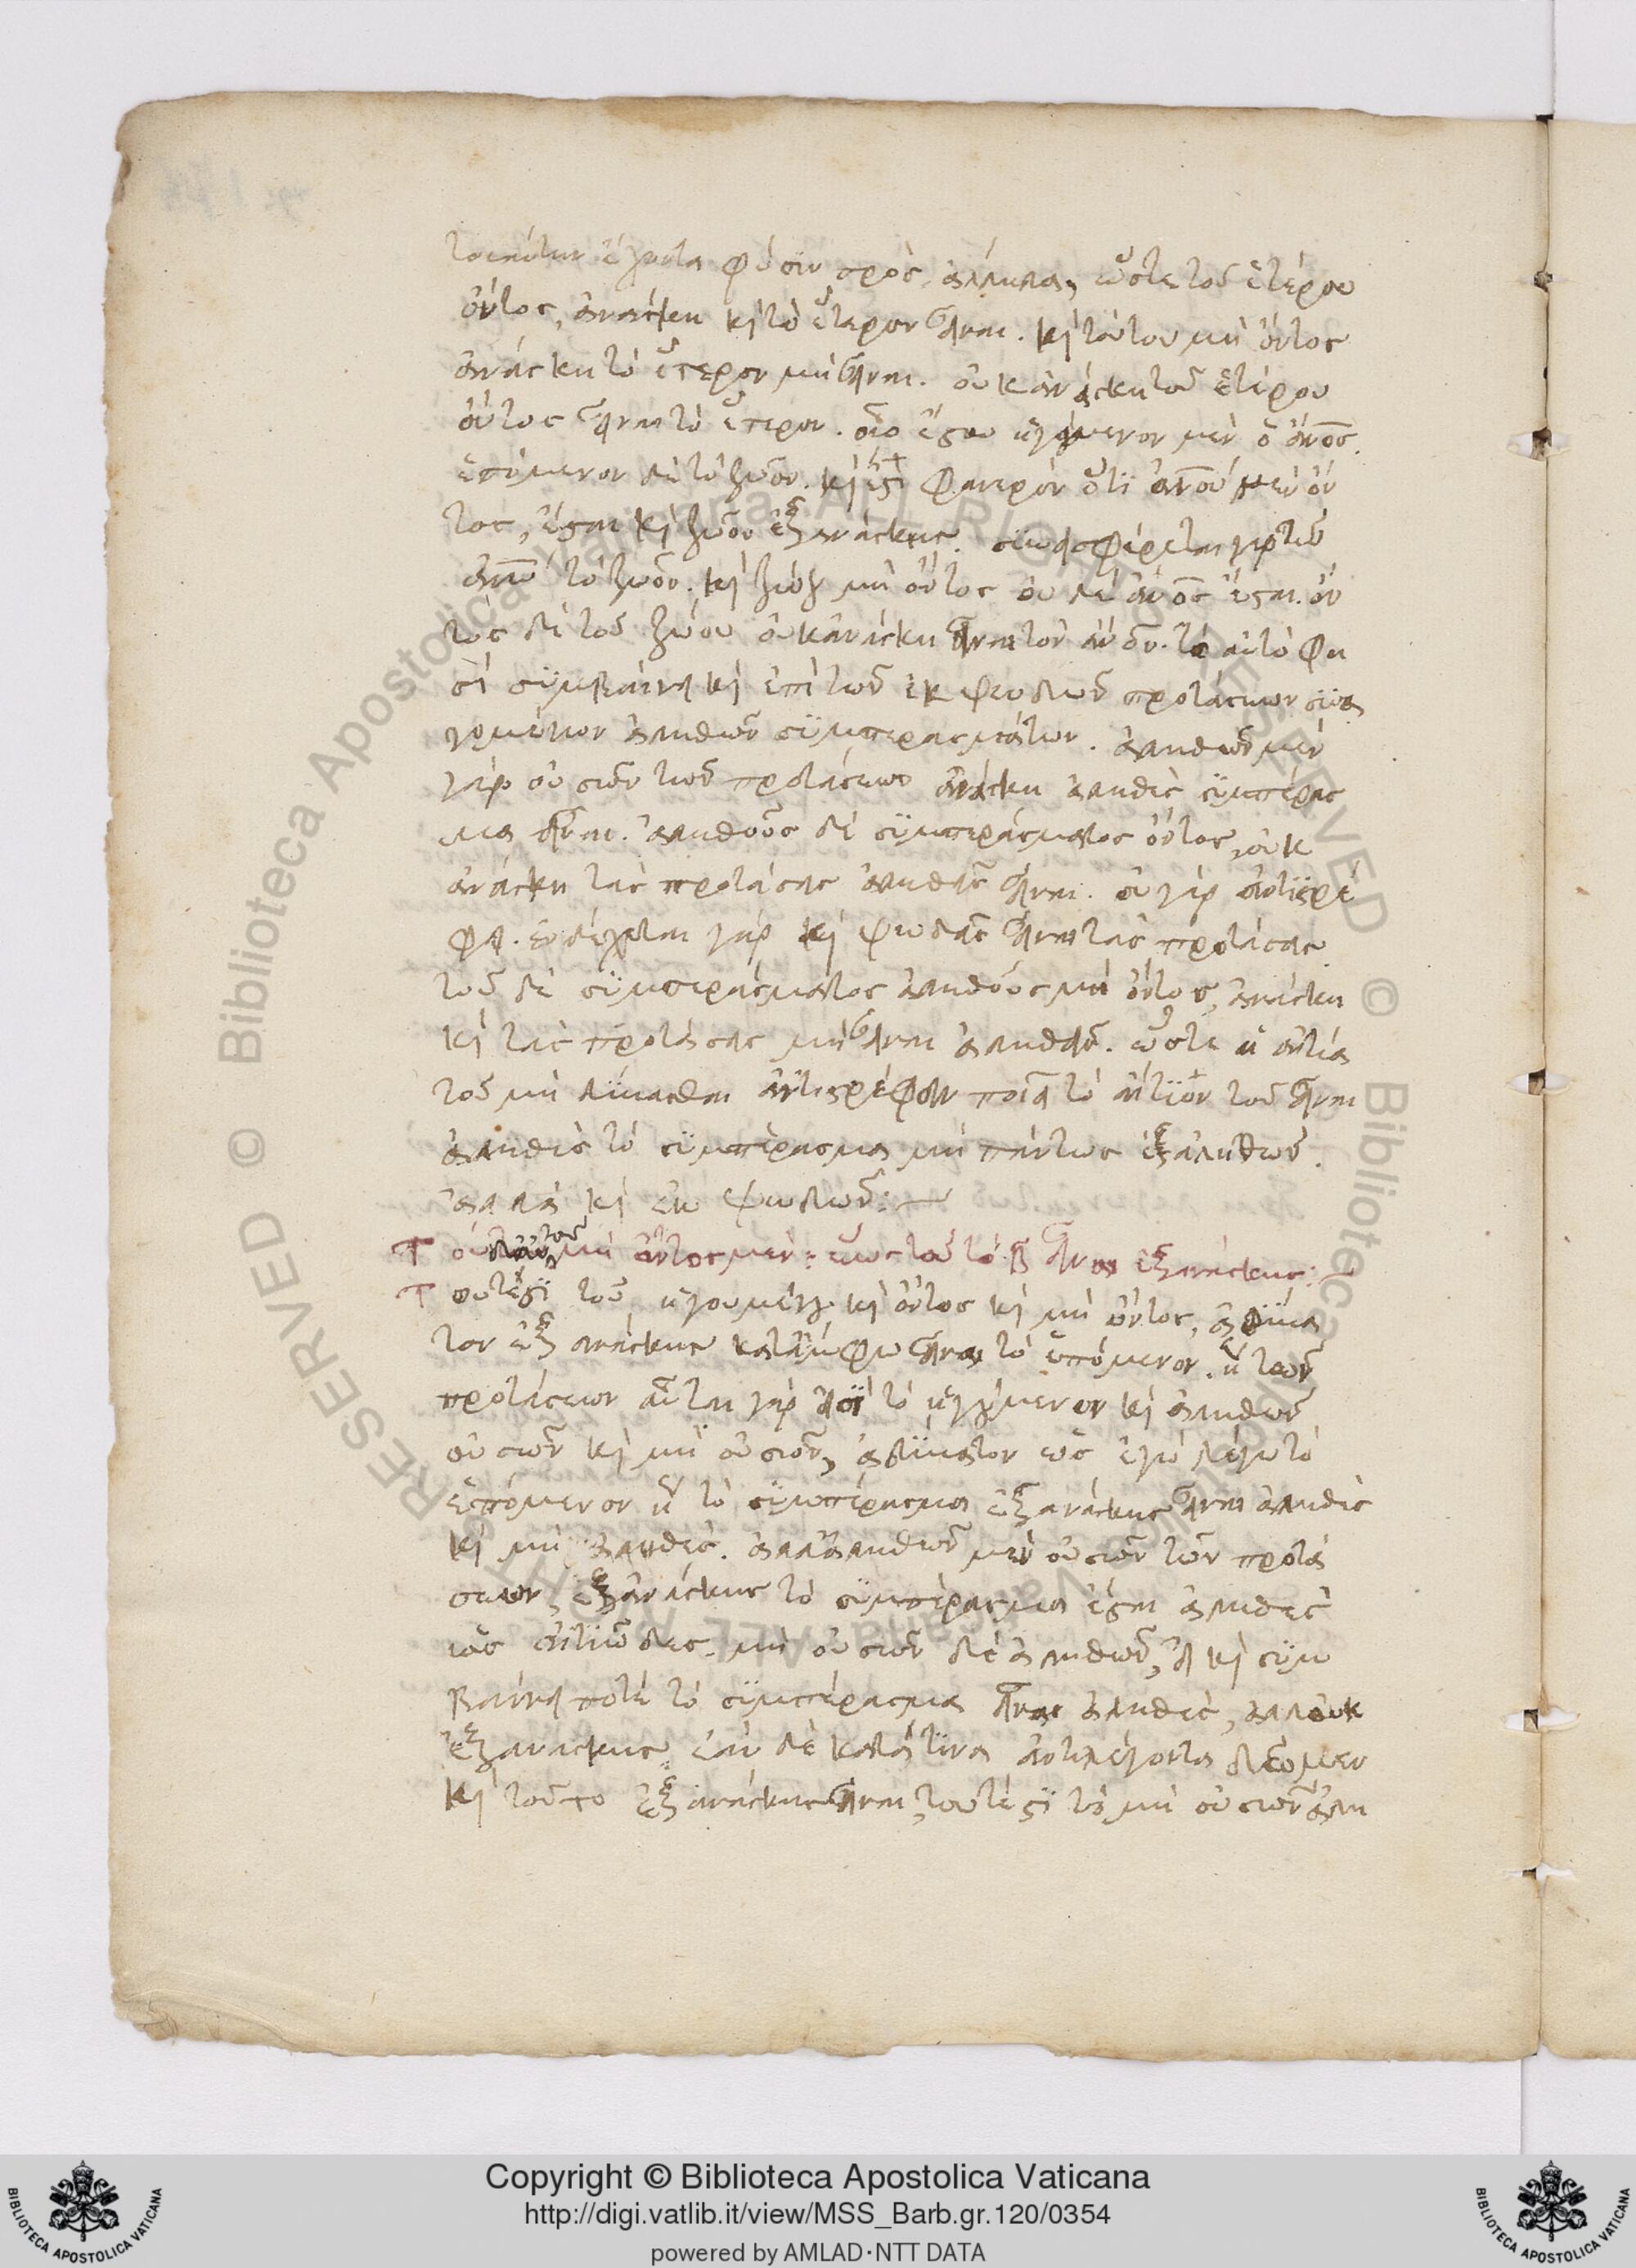 τοιαύτην ἔχοντα φύσιν πρὸς ἄλληλα, ὥστε τοῦ ἑτέρου
ὄντος, ἀνάγκη κὶ τὸ ἕτερον εἶναι. κὶ τούτου μὴ ὄντος
ἀνάγκη τὸ ἕτερον μὴ εἶναι. οὐκ ἀνάγκη τοῦ ἑτέρου
ὄντος εἶναι τὸ ἕτερον. οἷο ἔστω ἡγούμενον μὲν ὁ ἄνος.
ἑπόμενον δὲ τὸ ζῶον. κὶ ἔστι φανερὸν ὅτι ἀνοῦ μὲν ὄν
τος, ἔσται κὶ ζῶον ἐξ ἀνάγκης. συνεισφέρεται γὰρ τῶ
ἀνω τὸ ζῶον. κὶ ζώου μὴ ὄντος οὐδὲ ἄνος ἔσται. ὄν
τος δὲ τοῦ ζώου οὐκ ἀνάγκη εἶναι τὸν ἄνον. τὸ αὐτὸ φη
σὶ συμβαίνειν κὶ ἐπὶ τῶν ἐκ ψευδῶν προτάσεων συνα
γομένων ἀληθῶν συμπερασμάτων. ἀληθῶν μὲν
γὰρ οὐσῶν τῶν προτάσεων ἀνάγκη ἀληθὲς συμπέρας
μα εἶναι. ἀληθοῦς δὲ συμπεράσματος ὄντος, οὐκ
ἀνάγκη τὰς προτάσεις ἀληθεῖς εἶναι. οὐ γὰρ ἀντιστρέ
φει. ἐνδέχεται γὰρ κὶ ψευδεῖς εἶναι τὰς προτάσεις.
τοῦ δὲ συμπεράσματος ἀληθοῦς μὴ ὄντος, ἀνάγκη
κὶ τὰς προτάσεις μὴ εἶναι ἀληθεῖς. ὥστε ἡ αἰτία
τοῦ μὴ δύνασθαι ἀντιστρέφειν ποιεῖ τὸ αἴτιον τοῦ εἶναι
ἀληθὲς τὸ συμπέρασμα μὴ πάντως ἐξ ἀληθῶν.
ἀλλὰ κὶ ἐκ ψευδῶν:
Τοῦ δ' αὐτοῦ μὴ ὄντος μὲν: ἕως τοῦ τὸ Β εἶναι ἐξ ἀνάγκης:
Τουτέστι τοῦ ἡγουμένου κὶ ὄντος κὶ μὴ ὄντος, ἀδύνα
τον ἐξ ἀνάγκης κατ' ἄμφω εἶναι τὸ ἑπόμενον. ἢ τῶν
προτάσεων αὗται γάρ εἰσι τὸ ἡγούμενον κὶ ἀληθῶν
οὐσῶν κὶ μὴ οὐσῶν, ἀδύνατον ὡς ἐγὼ λέγω τὸ
ἑπόμενον ἢ τὸ συμπέρασμα ἐξ ἀνάγκης εἶναι ἀληθὲς
κὶ μὴ ἀληθές. ἀλλ' ἀληθῶν μὲν οὐσῶν τῶν προτά
σεων, ἐξ ἀνάγκης τὸ συμπέρασμα ἔσται ἀληθὲς
ὡς αἰτιῶδες. μὴ οὐσῶν δὲ ἀληθῶν, εἰ κὶ συμ
βαίνει ποτὲ τὸ συμπέρασμα εἶναι ἀληθές, ἀλλ' οὐκ
ἐξ ἀνάγκης. ἐὰν δὲ κατά τινα ἀντιλέγοντα δεῖ
κὶ τοῦτο ἐξ ἀνάγκης εἶναι, τουτέστι τὸ μὴ οὐσῶν ἀλη
Copyright © Biblioteca Apostolica Vaticana
http://digi.vatlib.it/view/MSS_Barb.gr.120/0354
powered by AMLAD·NTT DATA